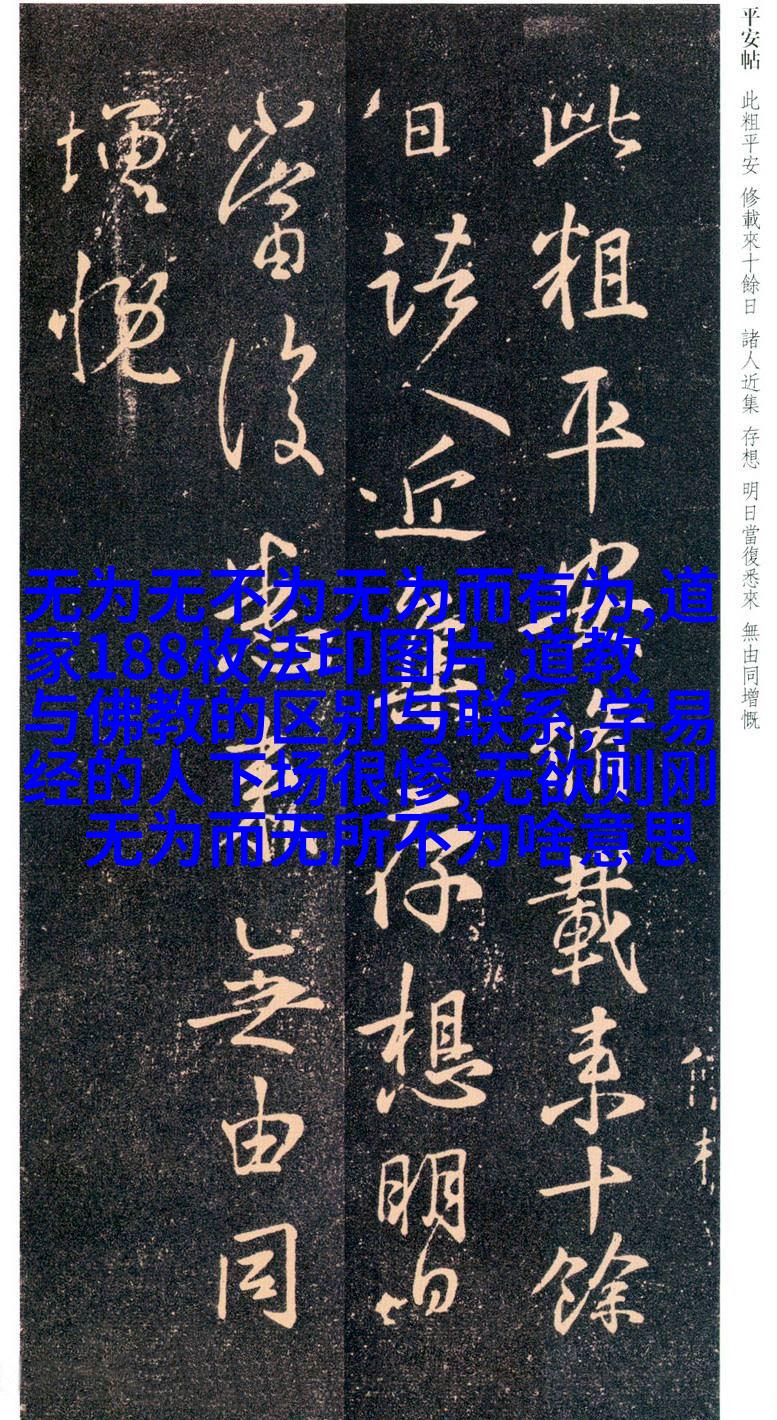 平安帖 此粗平安 修載來十餘日 諸人近集 存想 明日當復悉來 無由同增慨
此粗平安脩載来十餘
日諸人近集存想明日
當復悉来無由同
增慨
无为无不为无为而有为,道
家188枚法印图片,道教
与佛教的区别与联系,学易
经的人下场很惨,无欲则刚
无为而无所不为啥意思